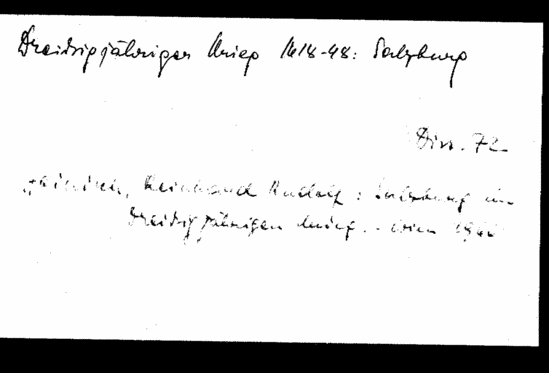 Dreißigjähriger Krieg 1618-48: Salzburg
Diss. 72
Heinisch, Reinhard Rudolf: Salzburg im
Dreißigjährigen Krieg. - Wien